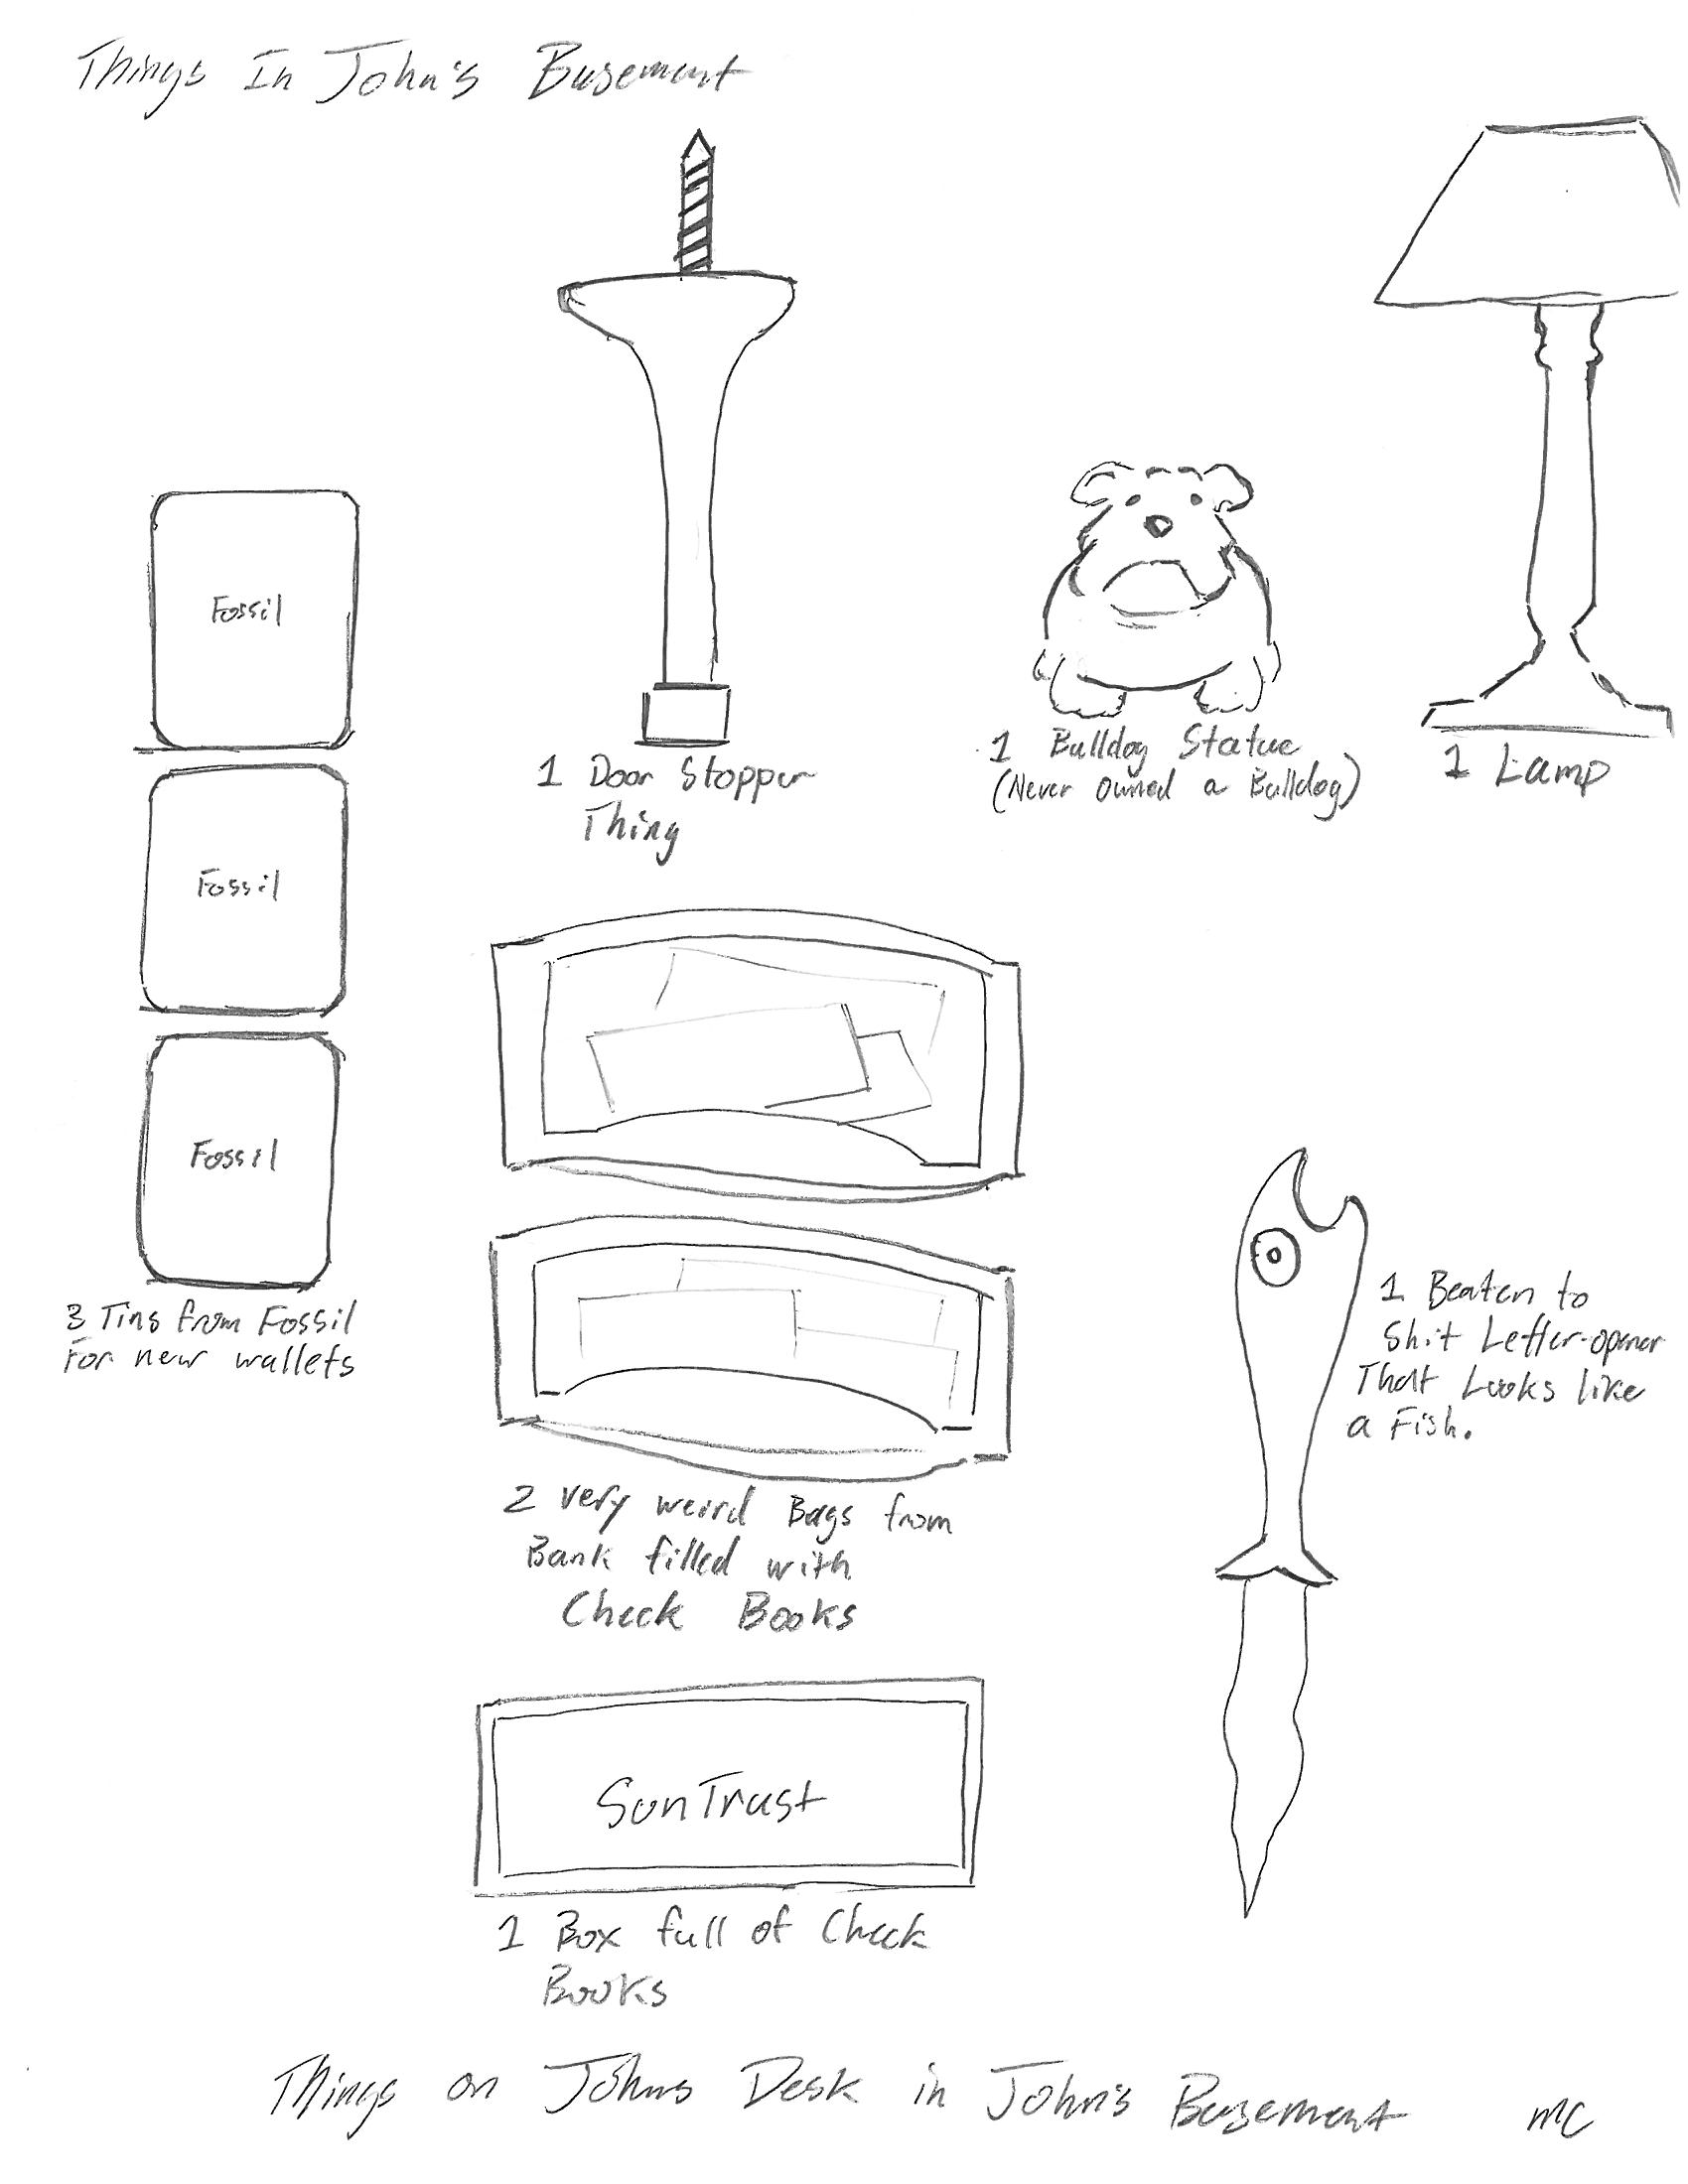 Things In John's Basement
Fossil
Fossil
Fossil
3 Tins from Fossil
For new wallets
1 Door Stopper
Thing
1 Bulldog Statue
(Never owned a Bulldog)
1 Lamp
2 very weird Bags from
Bank filled with
Check Books
1 Beaten to
Shit Letter-opener
That Looks like
a Fish.
SunTrust
1 Box full of Check
Books
Things on Johns Desk in John's Basement
MC